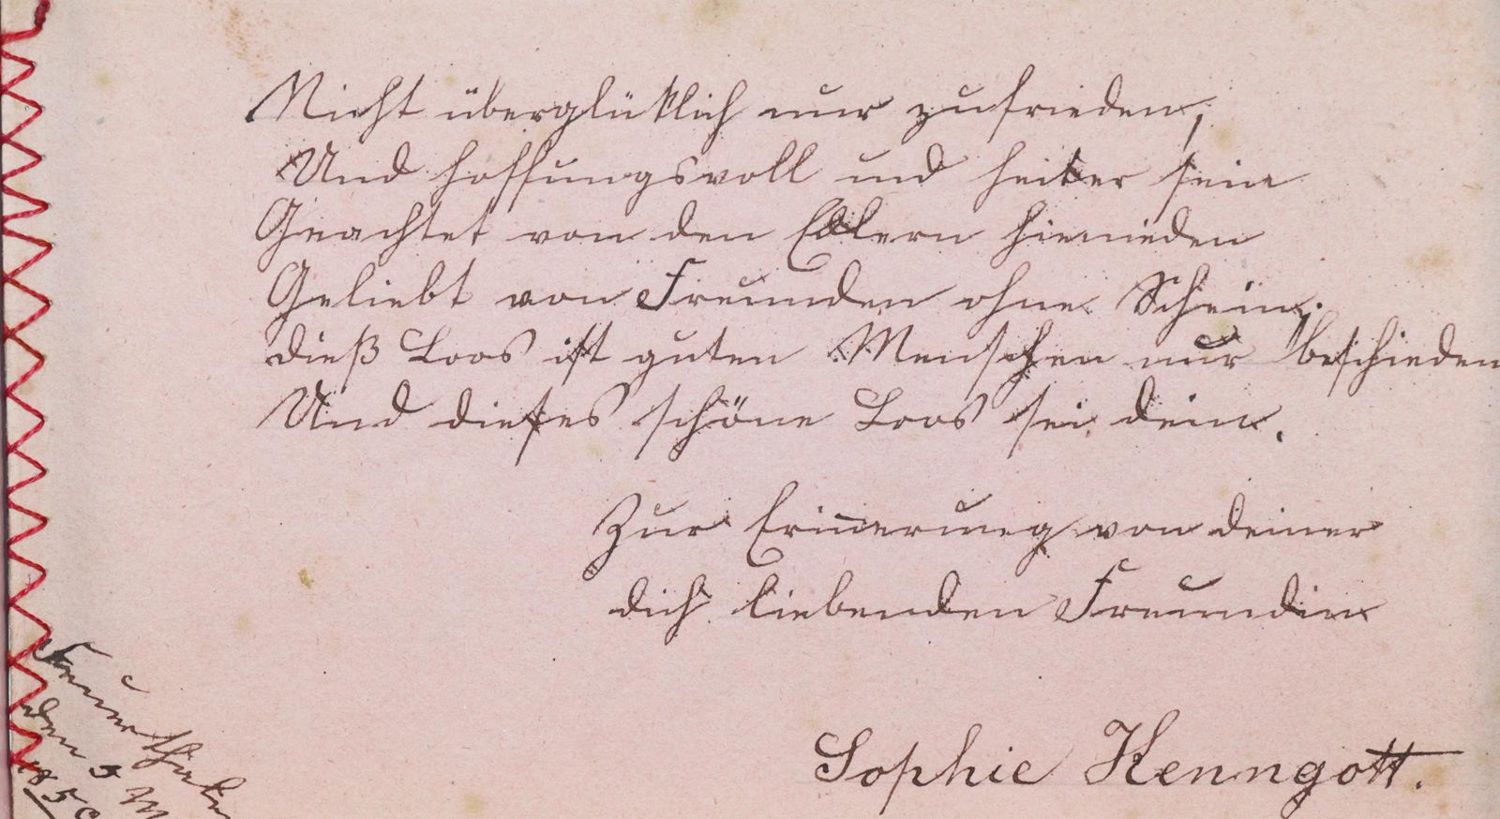 Nicht überglüklich nur zufrieden,
Und hoffungsvoll und heiter sein
Geachtet von den Edlern hienieden
Geliebt von Freunden ohne Schein;
dieß Loos ist guten Menschen nur beschieden
Und dieses schöne Loos sei dein.
Zur Erinnerung von deiner
dich liebenden Freundin
Sophie Kenngott.
den 5